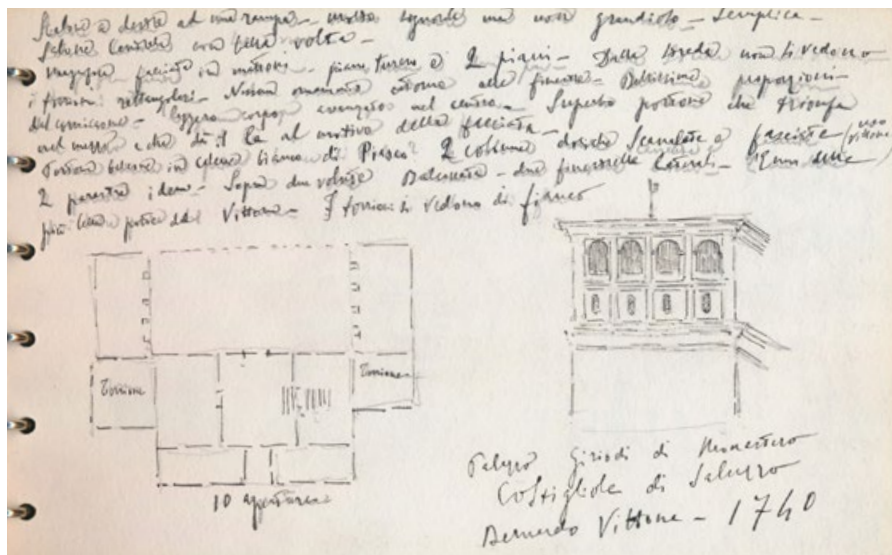 Scalone a destra ad una rampa - molto signorile ma non grandioso - Semplice -
Salone centrale con bella volta -
Magnifica facciata in mattone - piano terreno e 2 piani - Dalla strada non si vedono
i torrioni rettangolari - Nessun ornamento attorno alle finestre - Bellissime proporzioni
del cornicione - leggero corpo avanzato nel centro - Superbo portone che trionfa
nel mezzo e che dà il la al motivo della facciata -
in bianca di Piasco 2 colonne doriche Scanalate e fasciate (uso Vittone)
2 paraste idem - Sopra due volute Balconata - due finestrelle laterali - delle
più belle del Vittone - I torrioni si vedono di fianco
Torrione
Torrione
10 aperture
Palazzo Giriodi di Monastero
Costigliole di Saluzzo
Bernardo Vittone - 1740